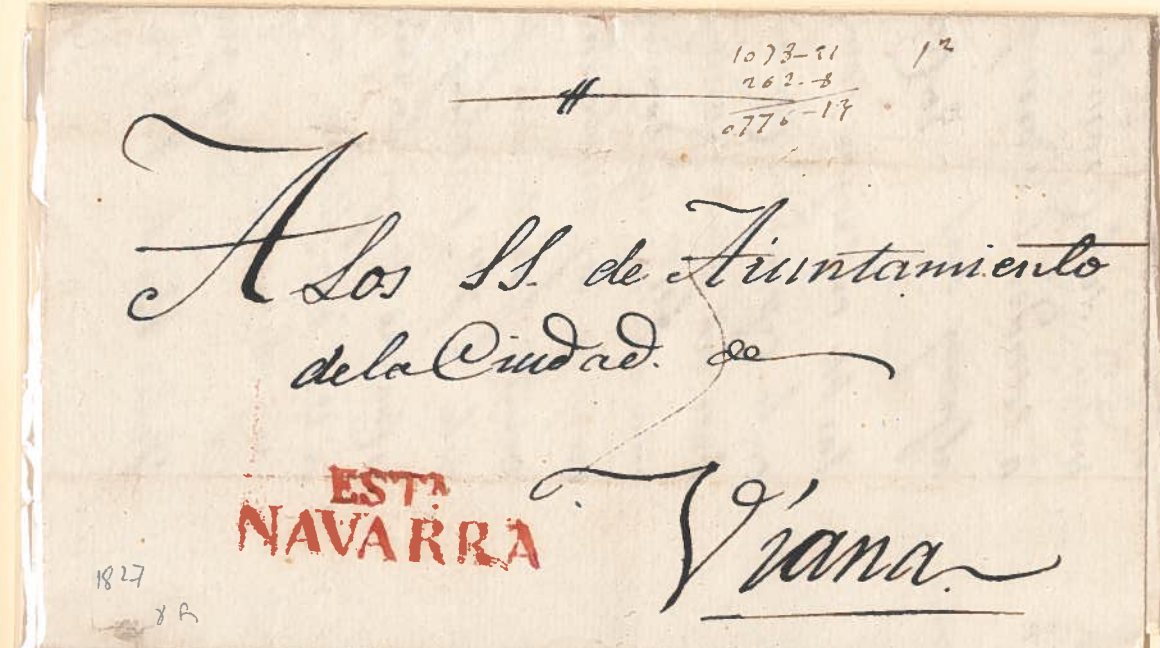 1073-21
262-8
0776-13
12
A Los SS. de Aiuntamiento
dela Ciudad. de
Viana.
ESTA
NAVARRA
1827